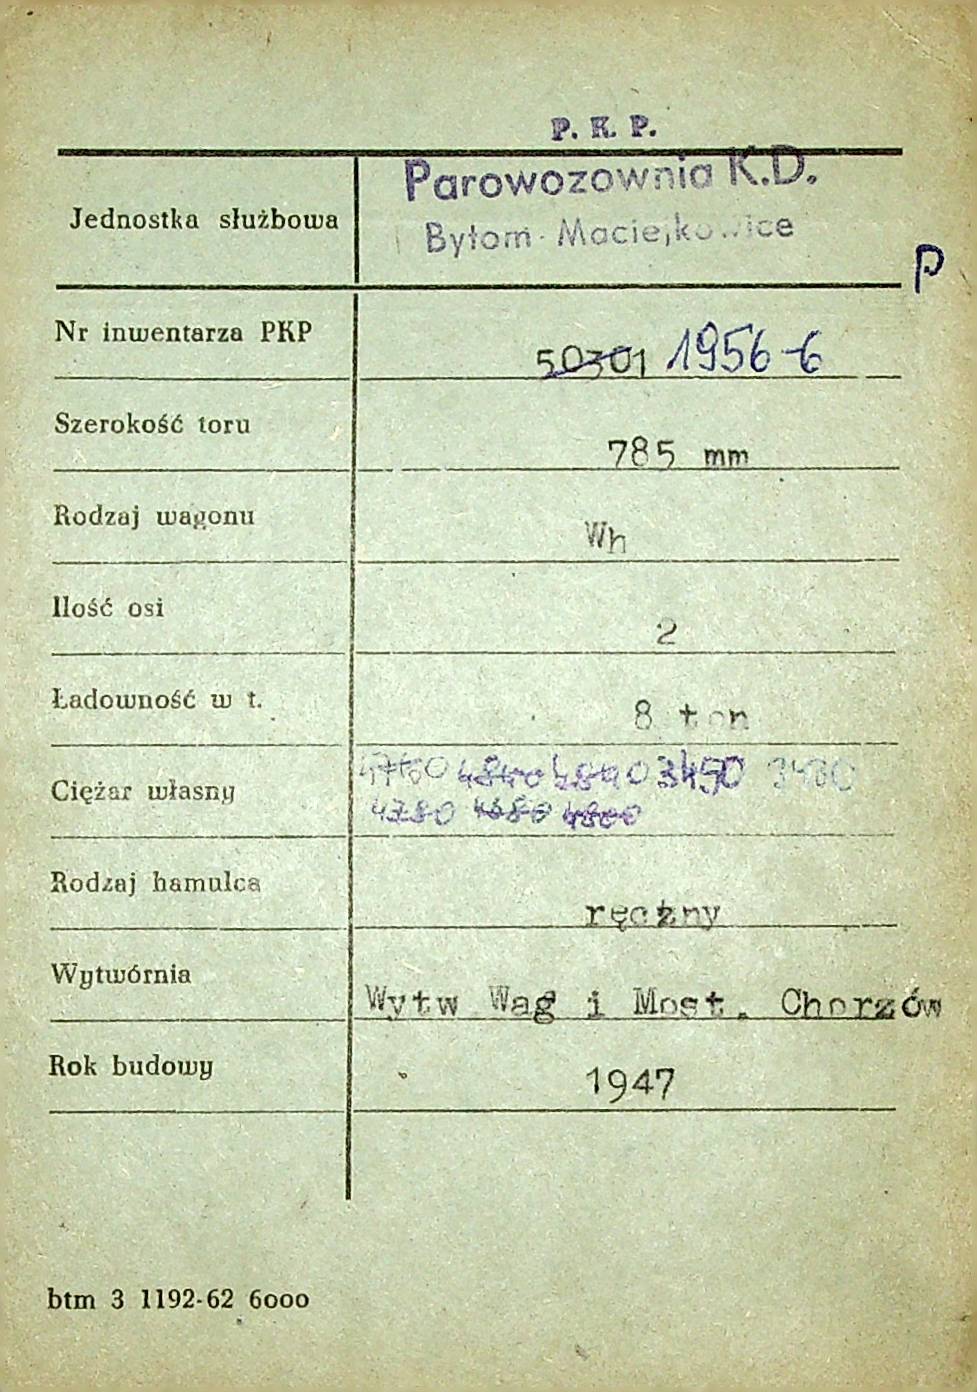 P. K. P.
Parowozownia K.D.
Jednostka służbowa
Bytom - Maciejkowice
P
Nr inwentarza PKP 50301 1956-6
Szerokość toru 785 mm
Rodzaj wagonu Wh
Ilość osi 2
Ładowność w t. 8 ton
Ciężar własny 4840 3450
4780 4680 4800
Rodzaj hamulca ręczny
Wytwórnia Wytw Wag i Most. Chorzów
Rok budowy 1947
btm 3 1192-62 6000